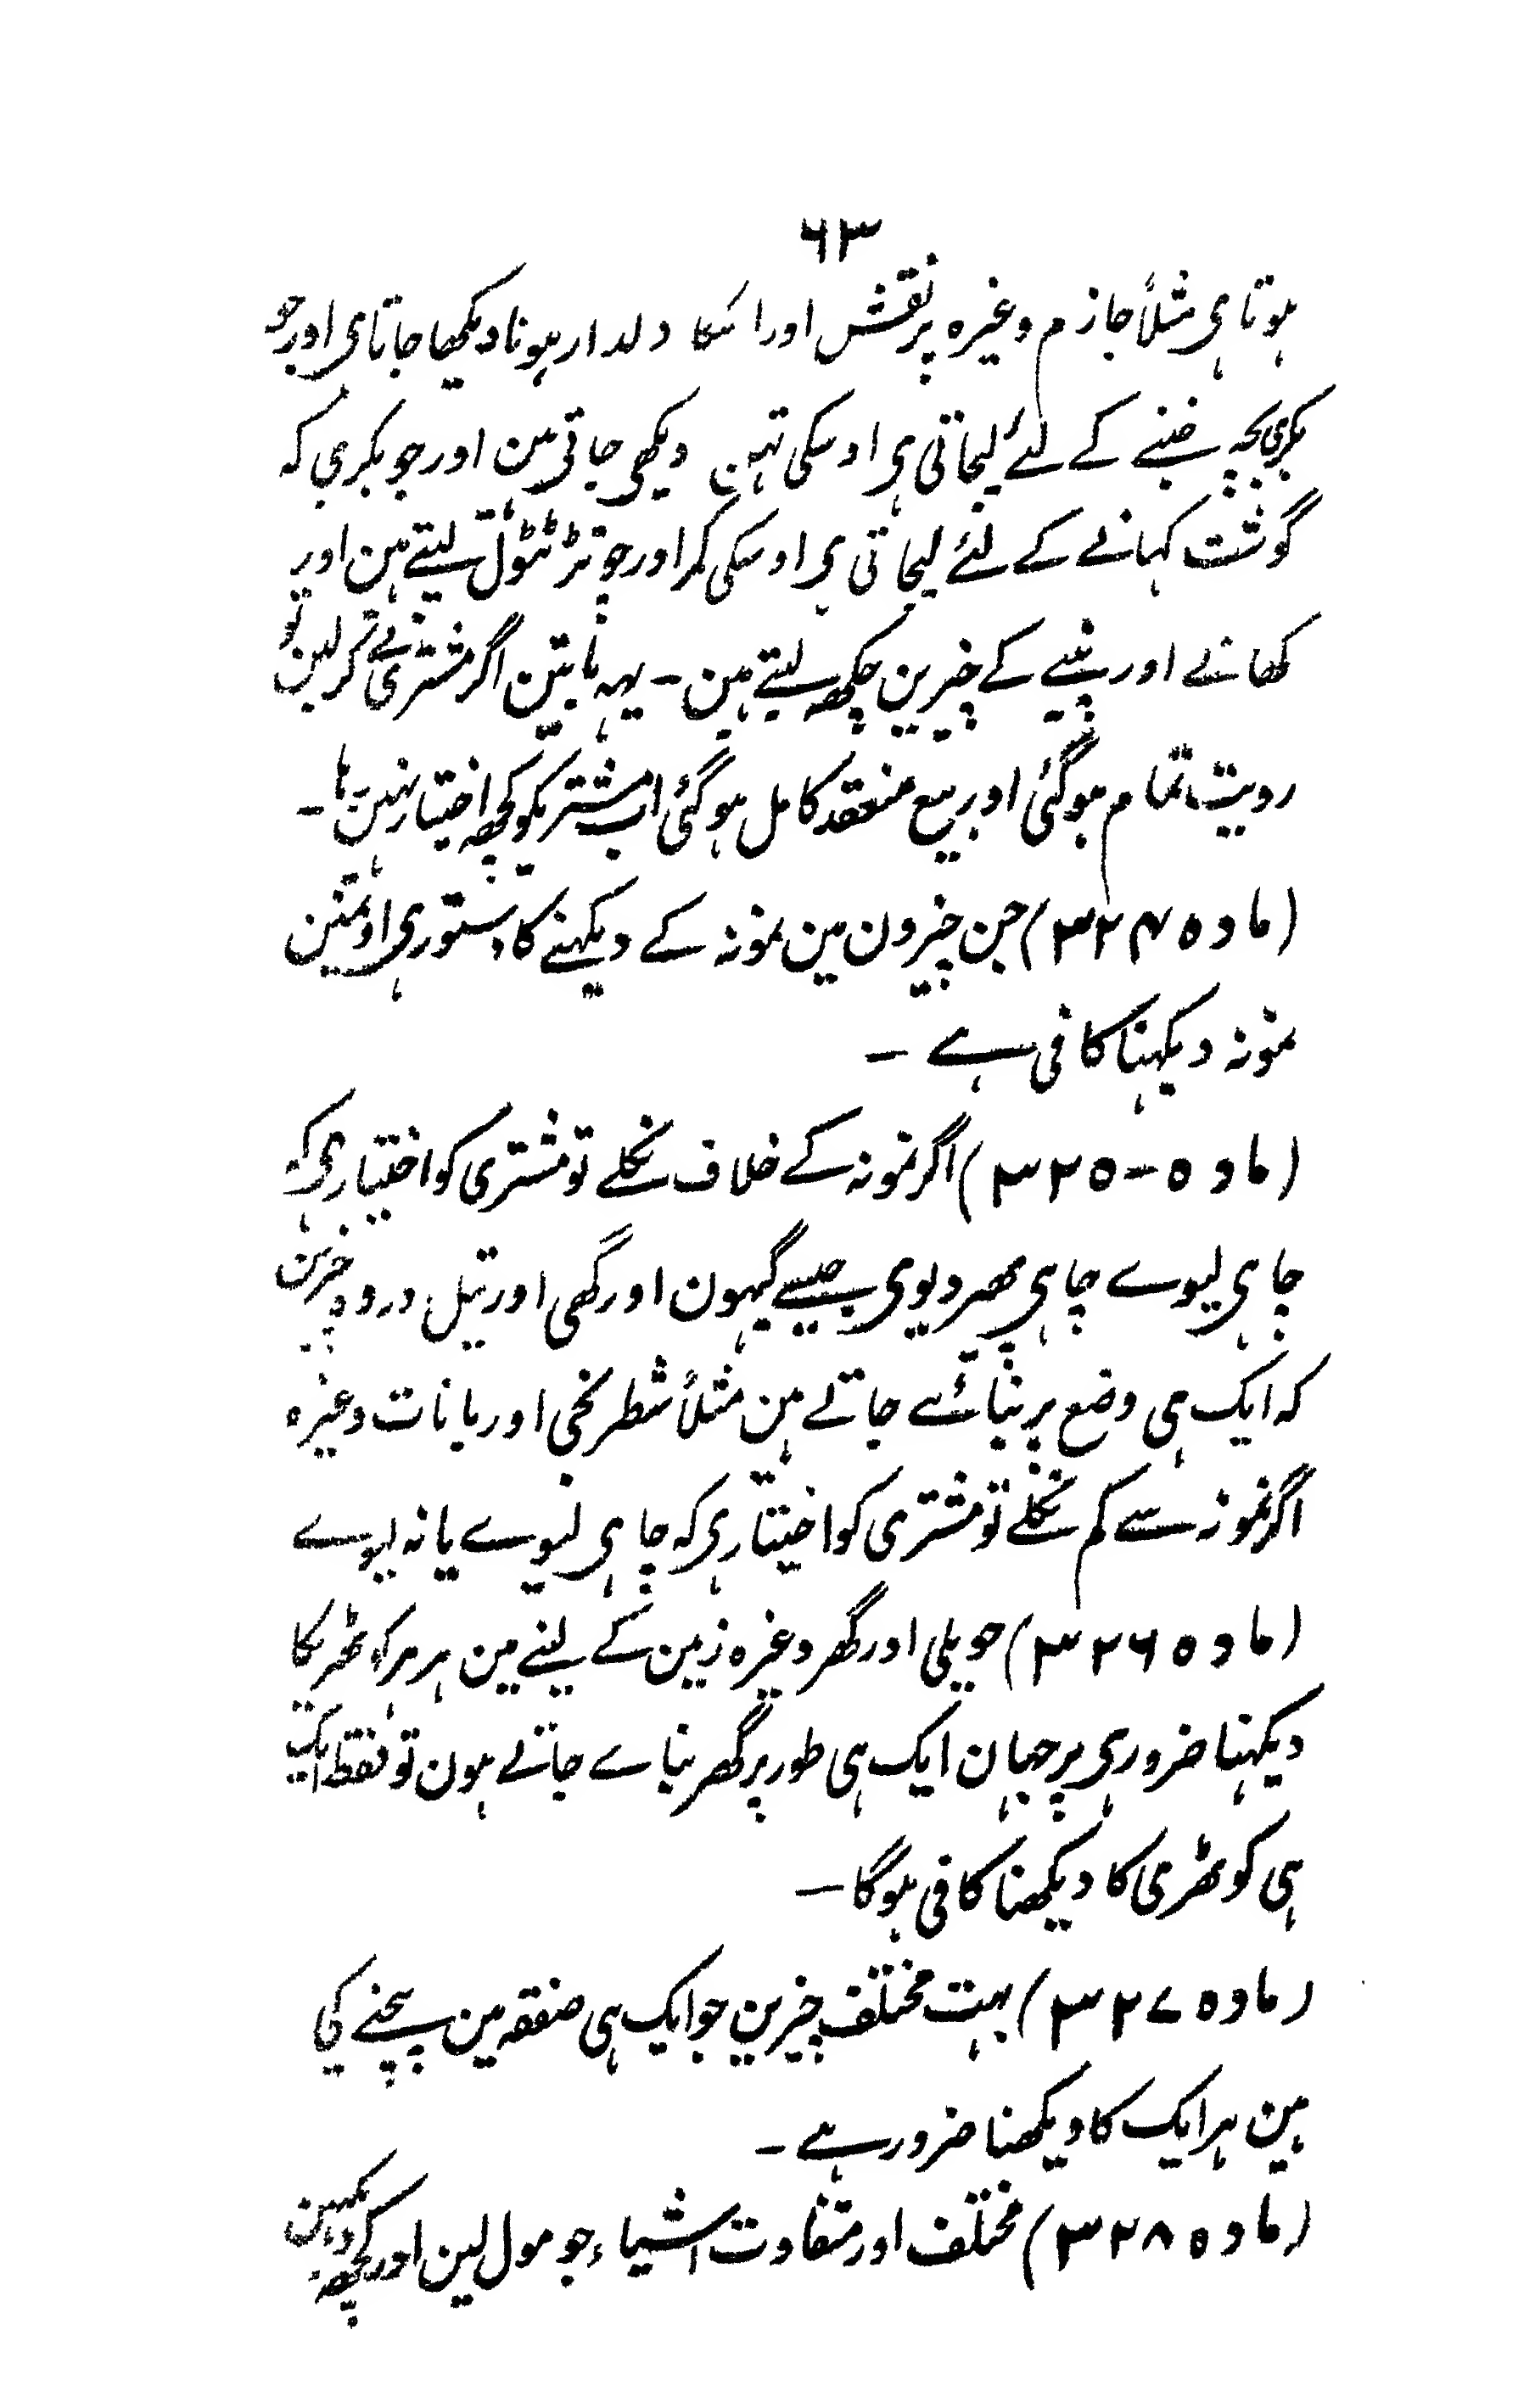 ٦٣
ہوتا ہی مثلاً جازم وغیرہ پر نقش اور اسکا دلدار ہونا دیکھا جاتا ہی اور جو
بکری بچہ جننے کے لئے لیجاتی ہی اوسکی تہن دیکھی جاتی ہین اور جو بکری کہ
گوشت کہانے کے لئے لیجاتی ہی اوسکی کمر اور چوتڑ ٹٹول لیتے ہین اور
کھانے اور پینے کے چیزین چکھہ لیتے ہین ۔ یہہ باتین اگر مشتری نے کرلین تو
رویت تمام ہوگئی اور بیع منعقد کامل ہوگئی اب مشتریکو کچھہ اختیار نہین رہا ۔
(مادہ ۳۲۴) جن چیزون مین نمونہ کے دیکہنے کا دستور ہی اونمین
نمونہ دیکہنا کافی ہے ۔
(مادہ - ۳۲۵) اگر نمونہ کے خلاف نکلے تو مشتری کو اختیار ہی کہ
چاہی لیوے چاہی پھیر دیوی جیسے گیہون اور گھی اور تیل اور وہ چیزین
کہ ایک ہی وضع پر بنائے جاتے ہین مثلاً شطرنجی اور بانات وغیرہ
اگر نمونہ سے کم نکلے تو مشتری کو اختیار ہی کہ چاہی لیوے یا نہ لیوے
(مادہ ۳۲۶) حویلی اور گھر وغیرہ زمین کے لینے مین ہر ہر کوٹھریکا
دیکہنا ضرور ہی پر جہان ایک ہی طور پر گھر بناے جاتے ہون تو فقط ایک
ہی کوٹھری کا دیکھنا کافی ہوگا ۔
(مادہ ۳۲۷) بہت مختلف چیزین جو ایک ہی صفقہ مین بیچنے کی
ہین ہر ایک کا دیکھنا ضرور ہے ۔
(مادہ ۳۲۸) مختلف اور متفاوت اشیاء جو مول لین اور کچھہ دیکہین